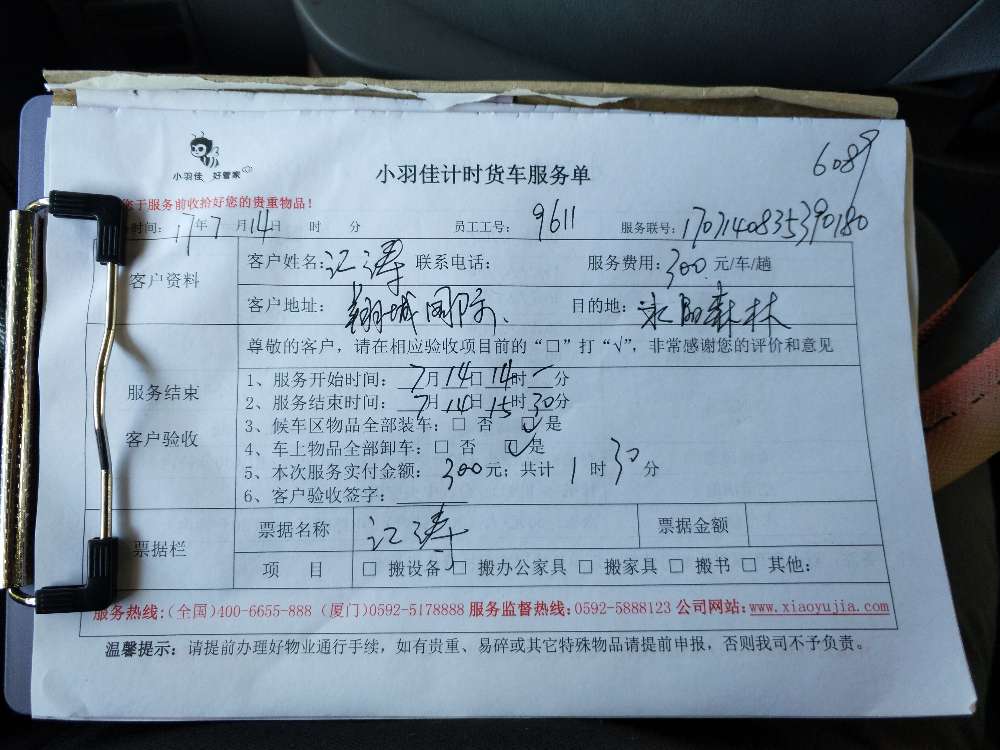 6089
小羽佳 好管家
小羽佳计时货车服务单
于服务前收拾好您的贵重物品！
时间：17年7月14日 时 分 员工工号：9611 服务联号：1707140835390180
客户资料 客户姓名：江涛 联系电话： 服务费用：300元/车/趟
客户地址：翔城国际 目的地：水晶森林
服务结束 客户验收
尊敬的客户，请在相应验收项目前的“□”打“√”，非常感谢您的评价和意见
1、服务开始时间：7月14日14时一分
2、服务结束时间：7月14日15时30分
3、候车区物品全部装车：□ 否 ☑ 是
4、车上物品全部卸车：□ 否 ☑ 是
5、本次服务实付金额：300元；共计 1 时 30 分
6、客户验收签字：
江涛
票据栏 票据名称 票据金额
项 目 □ 搬设备 □ 搬办公家具 □ 搬家具 □ 搬书 □ 其他：
服务热线：(全国)400-6655-888 (厦门)0592-5178888 服务监督热线：0592-5888123 公司网站：www.xiaoyujia.com
温馨提示：请提前办理好物业通行手续，如有贵重、易碎或其它特殊物品请提前申报，否则我司不予负责。